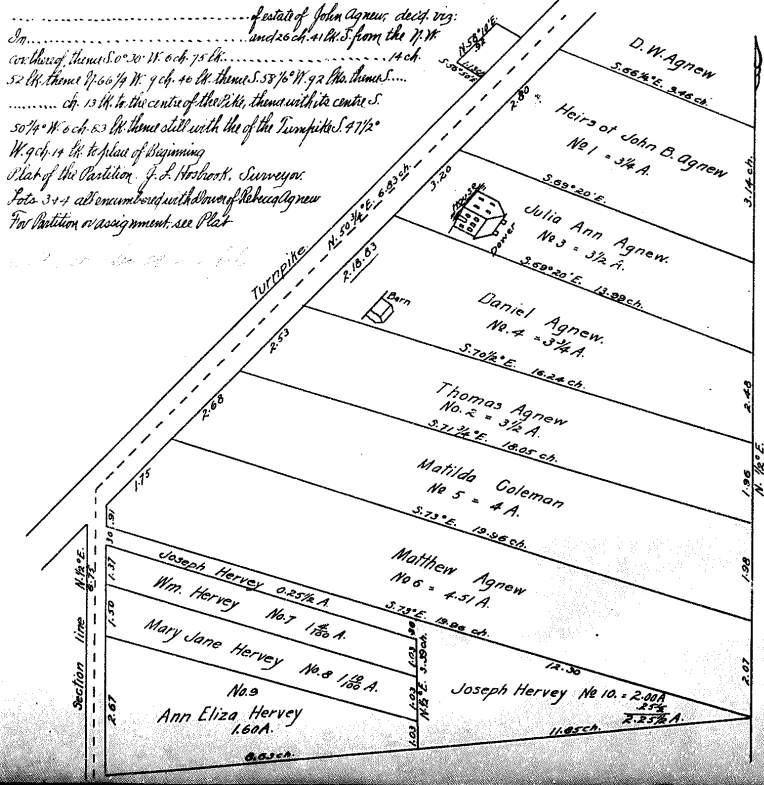 of estate of John Agnew, decd, viz:
In and 26 ch. 41 lk. S. from the N.W.
cor. thereof, thence S. 0° 30' W. 6 ch. 75 lk. 14 ch.
52 lk. thence N. 66 1/4 W. 9 ch. 40 lk. thence S. 58 1/6° W. 92 lks. thence S.
ch. 13 lk. to the centre of the Pike, thence with its centre S.
50 1/4° W. 6 ch. 83 lk. thence still with the of the Turnpike S. 47 1/2°
W. 9 ch. 14 lk. to place of Beginning
Plat of the Partition J. L. Hosbrook, Surveyor.
Lots 3 + 4 all encumbered with Dower of Rebecca Agnew
For Partition or assignment, see Plat
D. W. Agnew
S. 66 1/4° E. 9.46 ch.
2.80
Heirs of John B. Agnew
No 1 = 3 1/4 A.
3.14 ch.
S. 69° 20' E.
3.20
House
Dower
Julia Ann Agnew.
No 3 = 3 1/2 A.
S. 69° 20' E. 13.99 ch.
Turnpike
N. 50 3/4° E. 6.83 ch.
2.18.83
Barn
Daniel Agnew.
No. 4 = 3 3/4 A.
S. 70 1/2° E. 16.24 ch.
2.53
2.48
Thomas Agnew
No. 2 = 3 1/2 A.
S. 71 3/4° E. 18.05 ch.
2.68
1.96
N. 1/2° E.
Matilda Coleman
No 5 = 4 A.
S. 73° E. 19.96 ch.
1.75
1.98
.91
Matthew Agnew
No 6 = 4.51 A.
S. 73° E. 19.96 ch.
30
Joseph Hervey 0.25 1/2 A.
1.37
Wm. Hervey No. 7 1 4/100 A.
30
1.50
Mary Jane Hervey No. 8 1 10/100 A.
1.03
N. 1/2° E. 3.39 ch.
12.30
2.07
Section line N. 1/2° E.
6.75
No. 9
Ann Eliza Hervey
1.60 A.
2.67
1.03
1.03
Joseph Hervey No 10. = 2.00 A
.25 1/2
2.25 1/2 A.
8.83 ch.
11.85 ch.